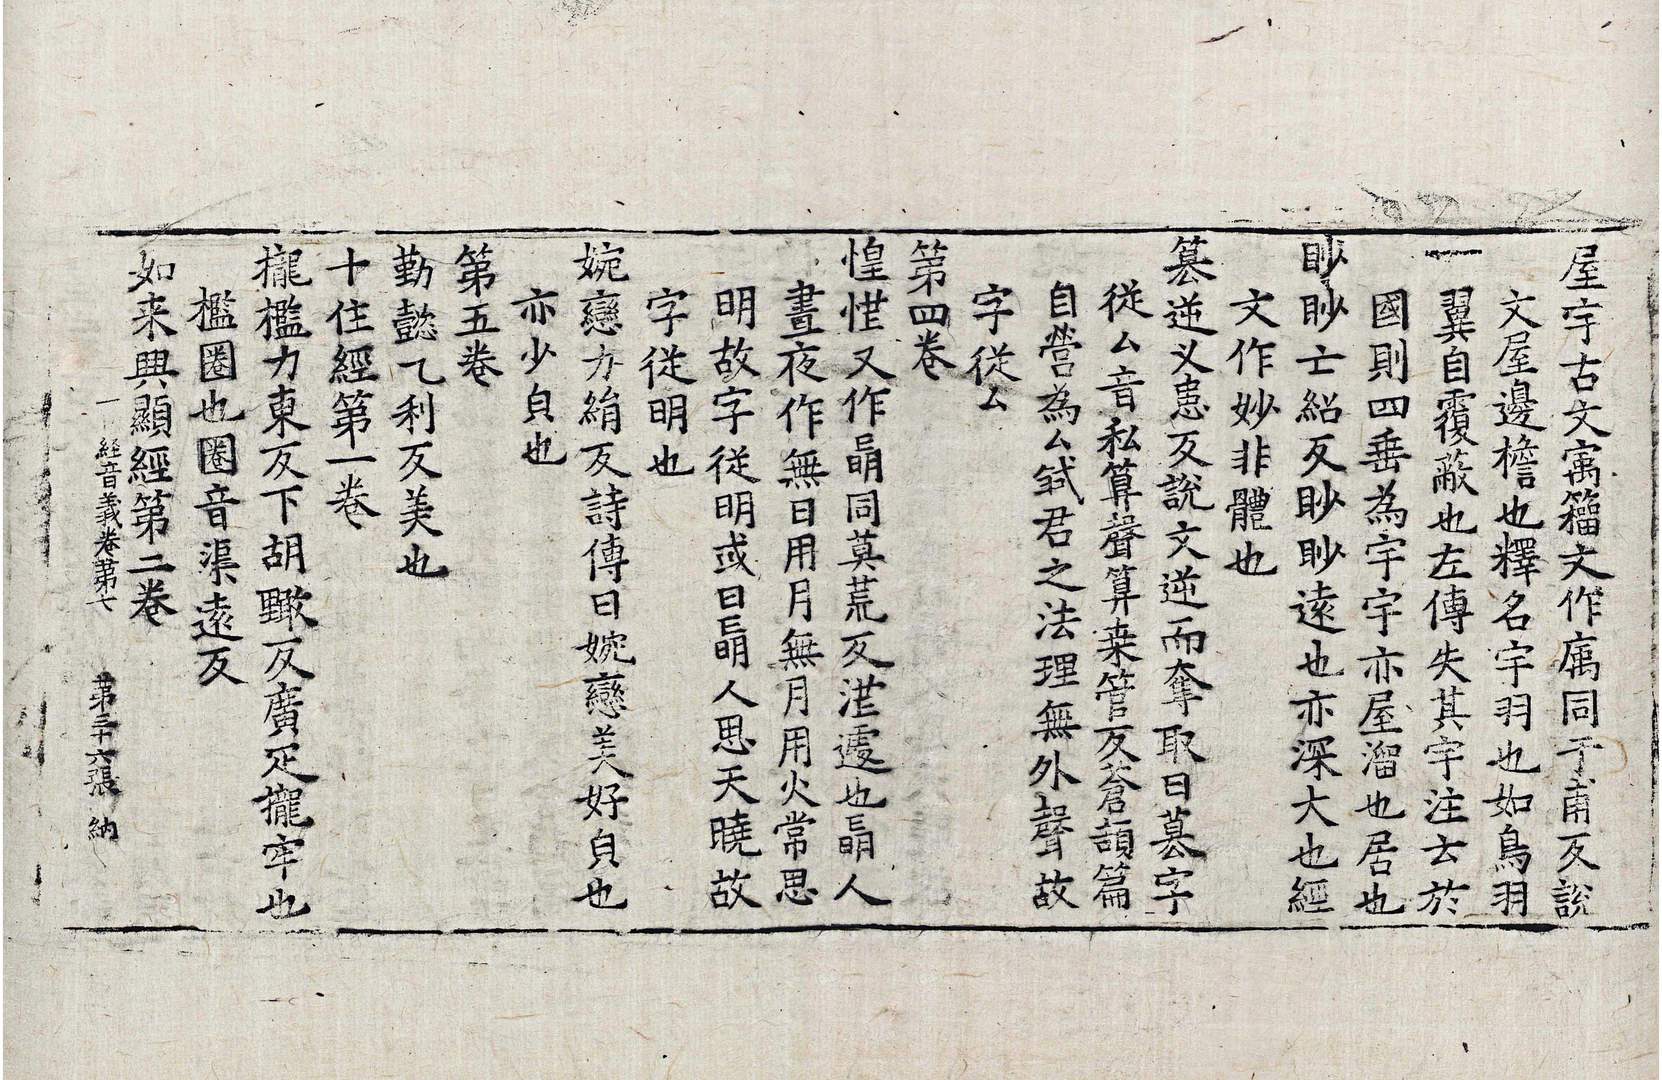 屋宇古文㝢籀文作㡰同于甫反說
文屋邊檐也釋名宇羽也如鳥羽
翼自覆蔽也左傳失其宇注云於
國則四垂為宇宇亦屋溜也居也
眇眇亡紹反眇眇遠也亦深大也經
文作妙非體也
篡逆叉患反說文逆而奪取曰篡字
從厶音私算聲算桒管反蒼頡篇
自營為厶弑君之法理無外聲故
字從厶
第四卷
惶恾又作朚同莫荒反恾遽也朚人
晝夜作無日用月無月用火常思
明故字從明或曰朚人思天曉故
字從明也
婉戀力絹反詩傳曰婉戀美好皃也
亦少皃也
第五卷
勤懿乙利反美也
十住經第一卷
攏檻力東反下胡黤反廣疋攏牢也
檻圈也圈音渠遠反
如来興顯經第二卷
一 經音義卷第七 第三十六張 納